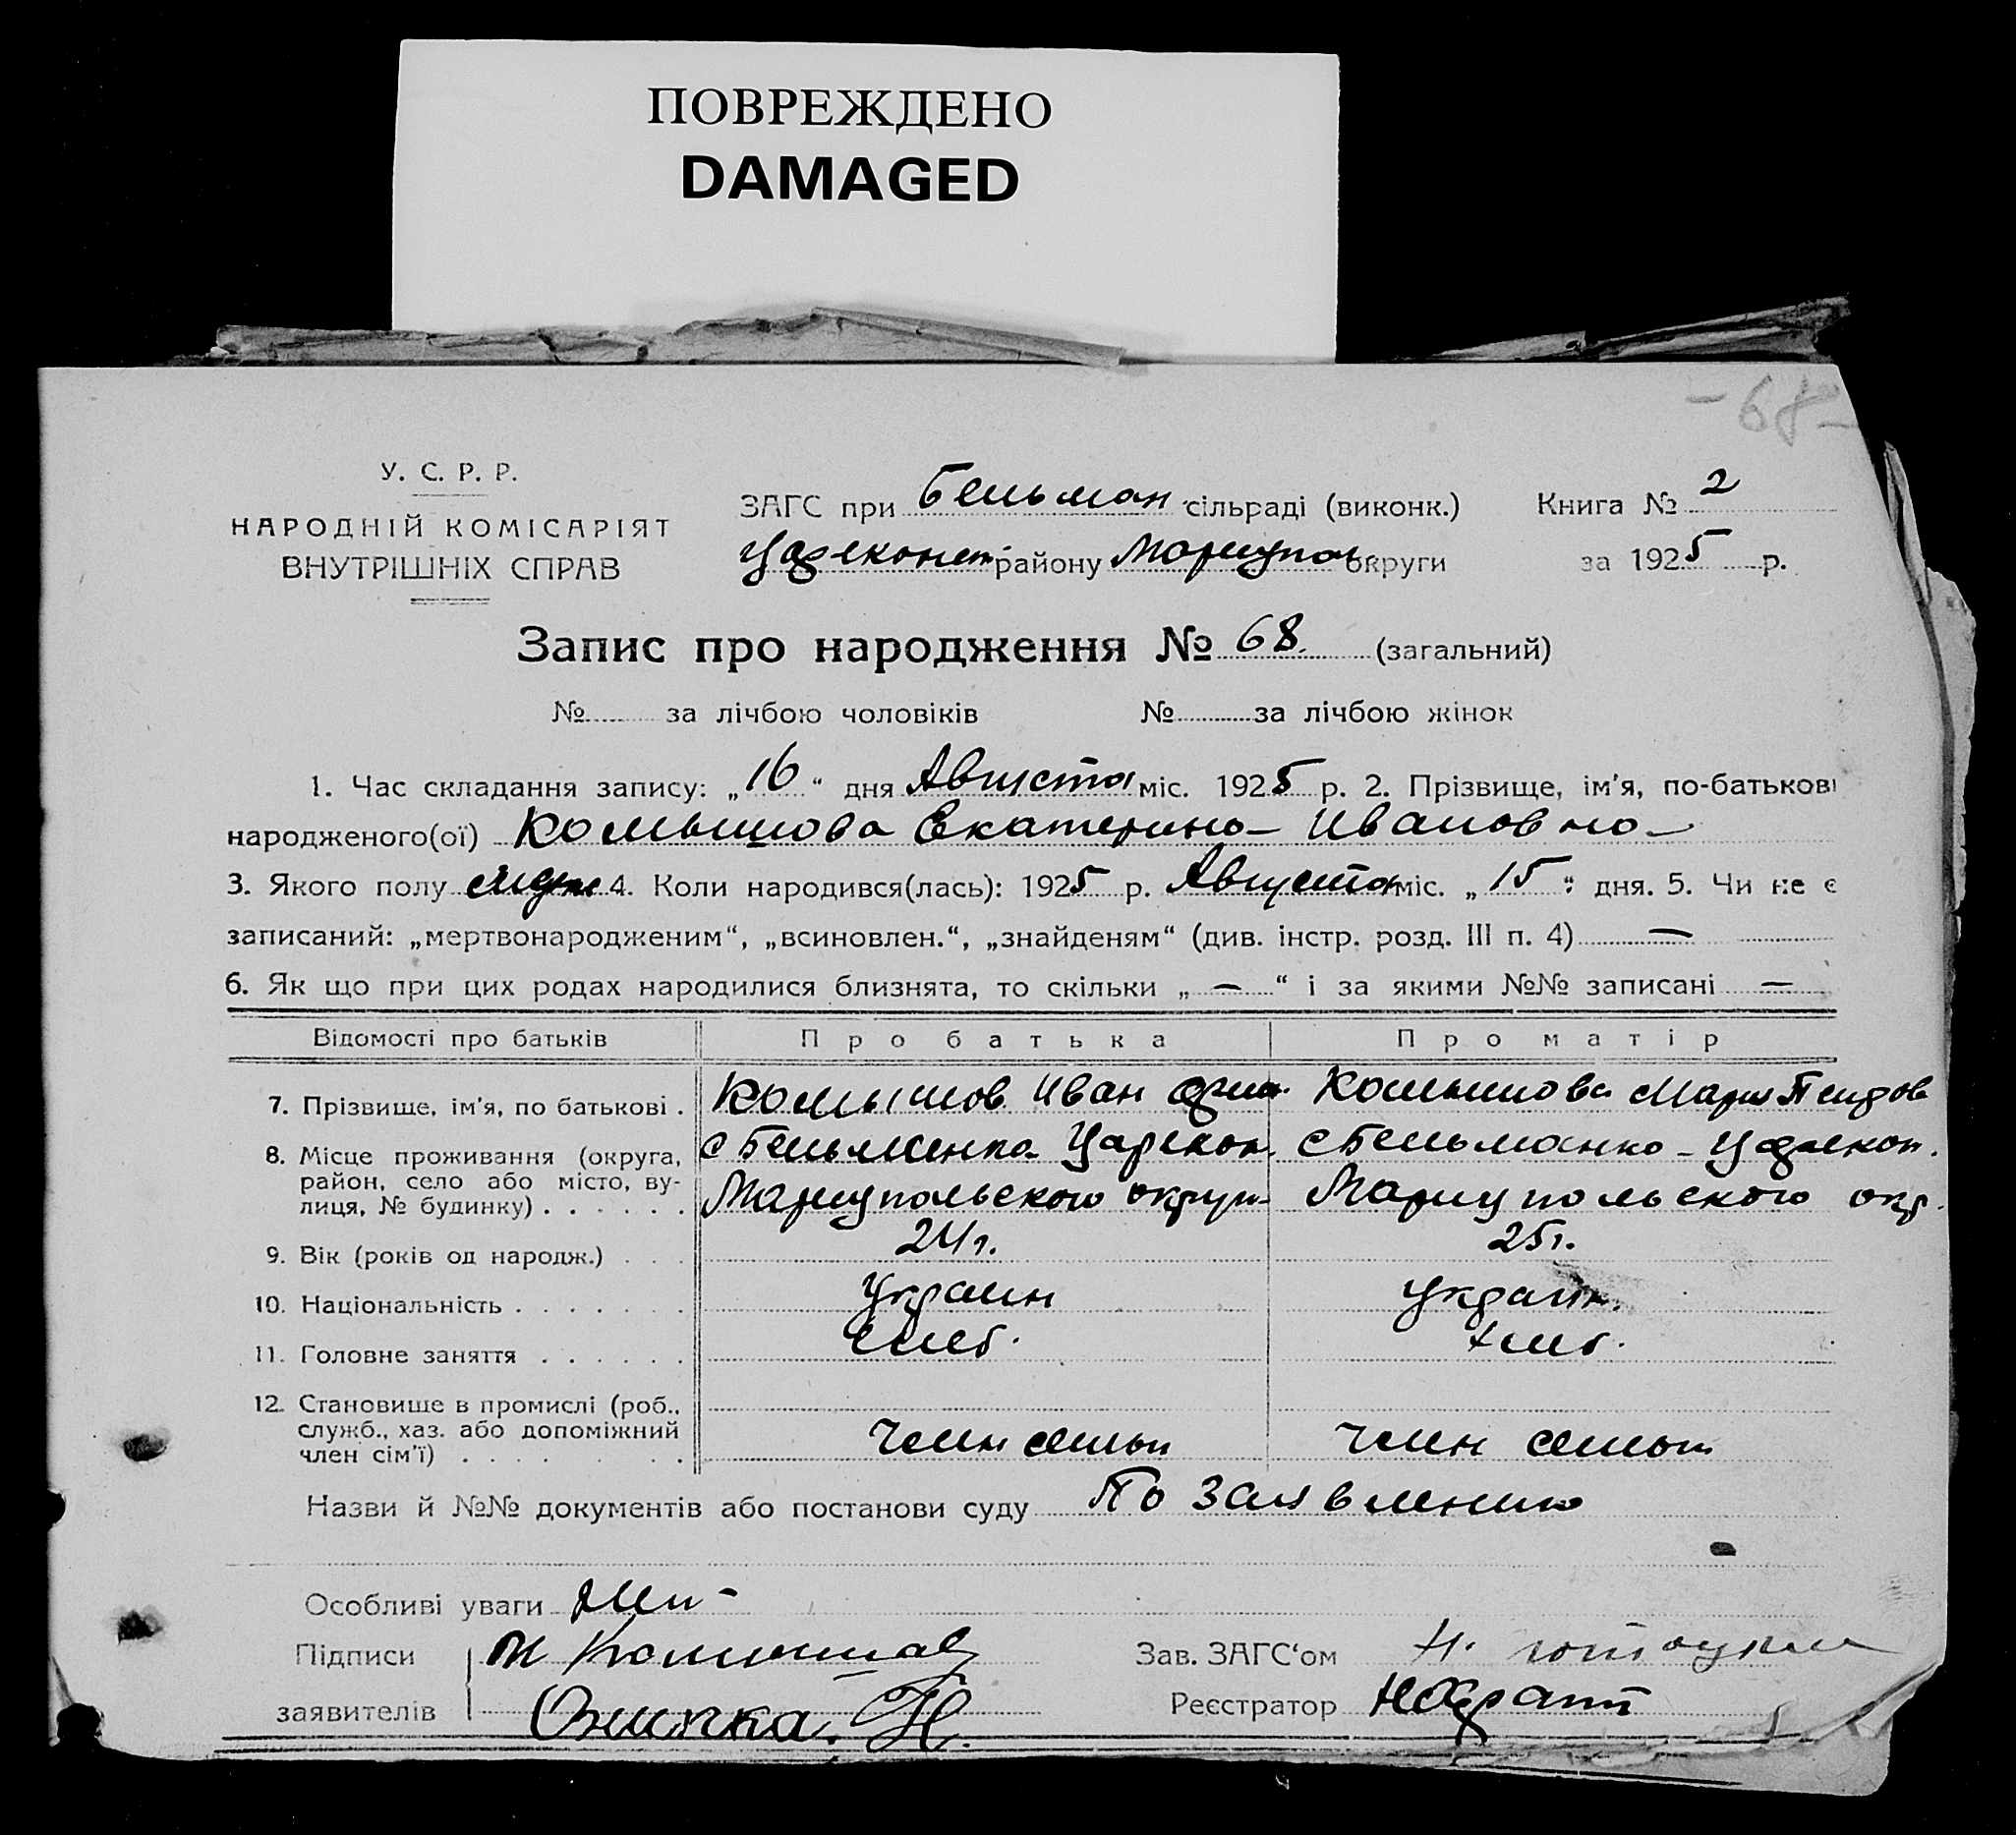 ПОВРЕЖДЕНО
DAMAGED
-68-
У. С. Р. Р.
НАРОДНІЙ КОМІСАРІЯТ
ВНУТРІШНІХ СПРАВ
ЗАГС при Бельман сільраді (виконк.)
Книга № 2
району Мариупол округи
за 1925 р.
Запис про народження № 68 (загальний)
№ за лічбою чоловіків № за лічбою жінок
1. Час складання запису: „16“ дня Августа міс. 1925 р. 2. Прізвище, ім'я, по-батькові
народженого(ої) Комышова Екатерина Ивановна
3. Якого полу 4. Коли народився(лась): 1925 р. Августа міс. „15“ дня. 5. Чи не є
записаний: „мертвонародженим“, „всиновлен.“, „знайденям“ (див. інстр. розд. III п. 4) —
6. Як що при цих родах народилися близнята, то скільки „ — “ і за якими №№ записані —
Відомості про батьків Про батька Про матір
7. Прізвище, ім'я, по батькові . Комышов Иван Комышова Мария
8. Місце проживання (округа, район, село або місто, вулиця, № будинку) . . . . . . с Бельманка Царекон. Мариупольского округ с Бельманка Царекон. Мариупольского окр.
9. Вік (років од народж.) . . . 24 г. 25 г.
10. Національність . . . . . . . Украин Украин.
11. Головне заняття . . . . . . Хлеб. Хлеб.
12. Становище в промислі (роб., служб., хаз. або допоміжний член сім'ї) . . . . . . . Член семьи Член семьи
Назви й №№ документів або постанови суду По заявлению
Особливі уваги
Підписи
заявителів
Зав. ЗАГС'ом
Реєстратор